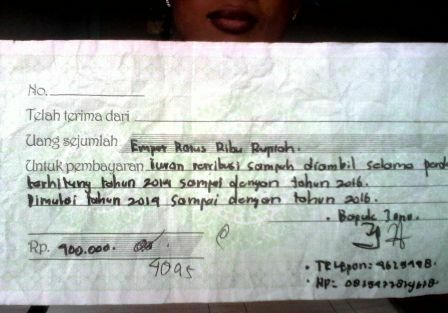 No.
Telah terima dari
Uang sejumlah Empat Ratus Ribu Rupiah.
Untuk pembayaran iuran retribusi sampah diambil selama
terhitung tahun 2014 sampai dengan tahun 2016.
Dimulai tahun 2014 sampai dengan tahun 2016.
. Bapak
Rp. 400.000.
4095
• Telepon:
• Hp: